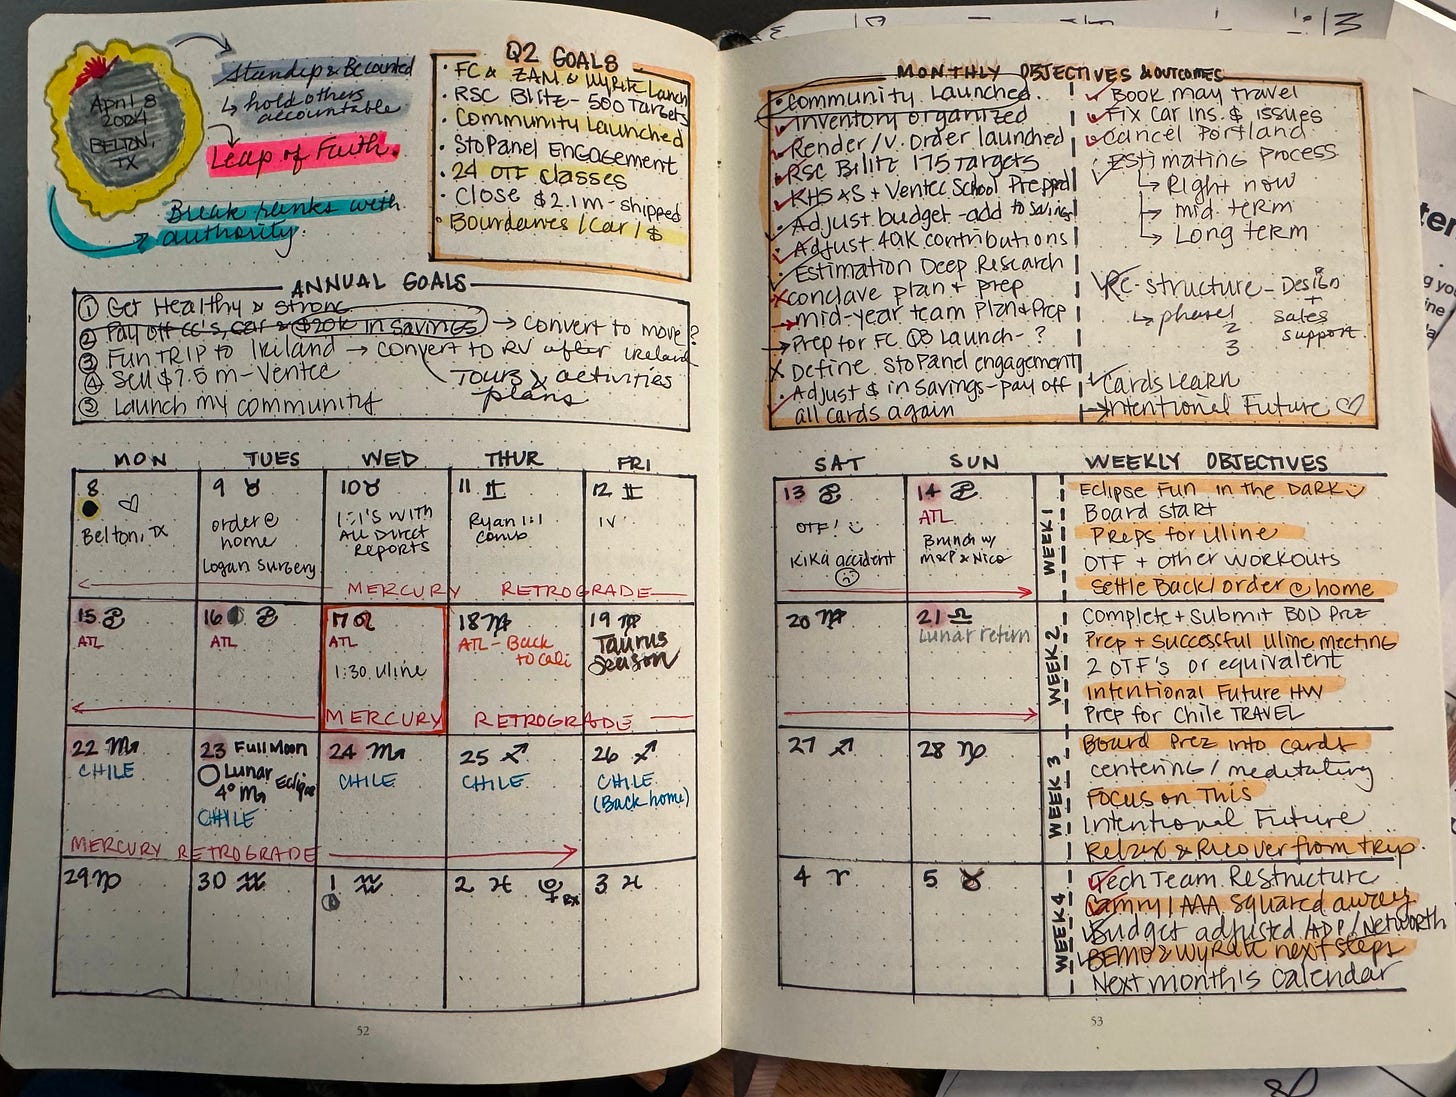 April 8
2024
BELTON,
TX
Standup & Be counted
↳ hold others
accountable
Leap of Faith.
Break ranks with
authority.
Q2 GOALS
• FC & ZAM & WyRite Lanch
• RSC Blitz - 500 Targets
• Community Launched
• StoPanel Engagement
• 24 OTF classes
• Close $2.1m - shipped
• Boundaries / Car / $
ANNUAL GOALS
① Get Healthy & Strong
② Pay off cc's, car & $20k in savings → convert to move?
③ Fun TRIP to Ireland → convert to RV after Ireland
Tours & activities
plans
④ Sell $7.5m - Ventec
⑤ Launch my community
MON TUES WED THUR FRI
8 ♡
Belton, TX
9 ♉
order @
home
Logan Surgery
10 ♉
1:1's with
All Direct
Reports
11 ♊
Ryan 1:1
Canb
12 ♊
IV
MERCURY RETROGRADE
15 ♋
ATL
16 ♋
ATL
17 ♌
ATL
1:30 Uline
18 ♍
ATL - Back
to cali
19 ♍
Taurus
Season
MERCURY RETROGRADE
22 ♏
CHILE
23 Full Moon
Lunar Eclipse
4° ♏
CHILE
24 ♏
CHILE
25 ♐
CHILE
26 ♐
CHILE
(Back home)
MERCURY RETROGRADE
29 ♑
30 ♒
1 ♒
2 ♓ ♀ Rx
3 ♓
52
MONTHLY OBJECTIVES & OUTCOMES
• Community Launched.
Inventory organized
Render/V. Order launched
RSC Bilitz 175 Targets
KHS AS + Ventec School Prepped
Adjust budget - add to savings
Adjust 401K contributions
Estimation Deep Research
Conclave plan & prep
mid-year team Plan & Prep
Prep for FC Q3 Launch - ?
Define StoPanel engagement
Adjust $ in savings - pay off
all cards again
Book may travel
Fix Car Ins. $ issues
Cancel Portland
Estimating Process
↳ Right now
↳ mid. term
↳ Long term
Re-structure - Design
+
sales
support.
↳ phase 1
2
3
Cards Learn
Intentional Future ♡
SAT SUN WEEKLY OBJECTIVES
13 ♋
OTF! :)
KiKa accident
14 ♋
ATL
Brunch w/
M&P & Nico
WEEK 1
Eclipse Fun in the DARK
Board start
Preps for Uline
OTF + other workouts
Settle Back/order @ home
20 ♍
21 ♎
Lunar return
WEEK 2
Complete + Submit BOD Prez
Prep + Successful Uline meeting
2 OTF's or equivalent
Intentional Future HW
Prep for Chile TRAVEL
27 ♐
28 ♑
WEEK 3
Board Prez into cards
centering / meditating
Focus on This
Intentional Future
Relax & Recover from trip.
4 ♈
5 ♉
WEEK 4
Tech Team Restructure
Camry / AAA Squared away
Budget adjusted / ADP / Networth
BEMO & WyRite next steps
Next month's calendar
53